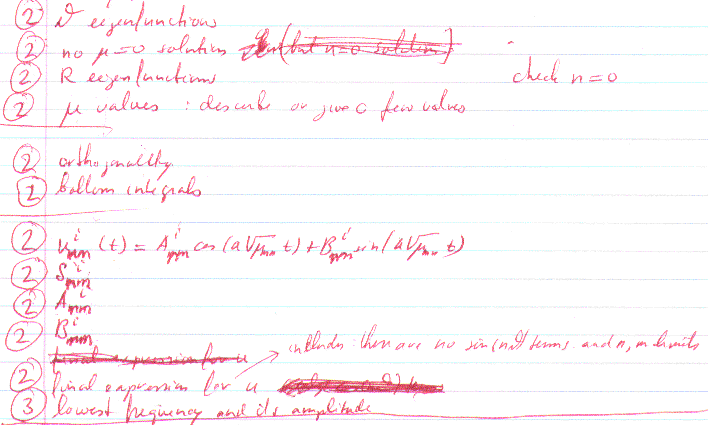 ② ϑ eigenfunctions
② no μ=0 solution
② R eigenfunctions check n=0
② μ values : describe or give a few values
② orthogonality
② bottom integrals
② u^i_nm (t) = A^i_nm cos (a√μ_nm t) + B^i_nm sin (a√μ_nm t)
② S^i_nm
② A^i_nm
② B^i_nm
includes: there are no sin(nϑ) terms and n, m limits
② final expression for u
③ lowest frequency and its amplitude